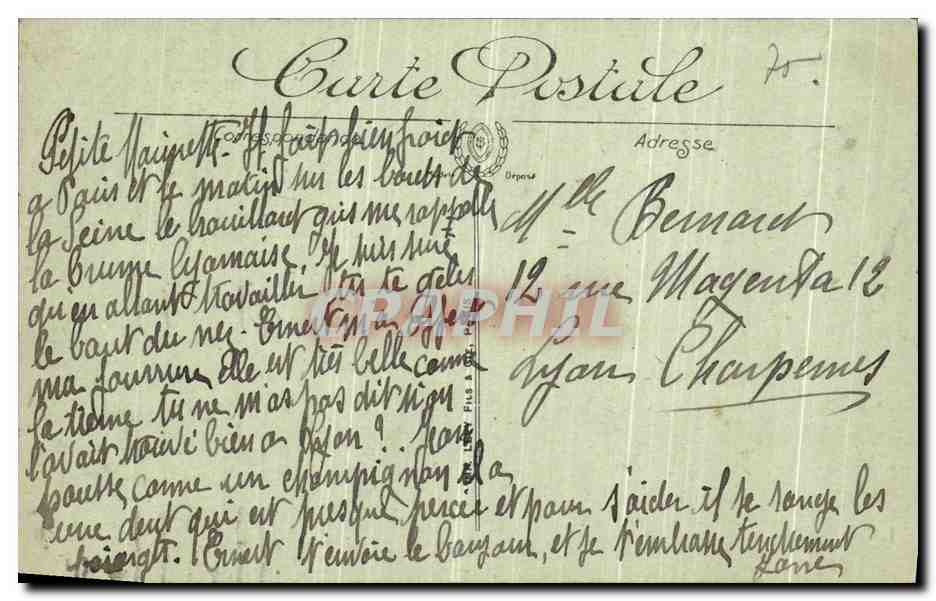 Carte Postale
70.
Correspondance
Adresse
Déposé
Petite Il fait bien froid
a Paris et le matin sur les bords de
la Seine le brouillard qui me rappelle
la brume lyonaise. Je suis sure
qu'en allant travailler tu te gèles
le bout du nez. Ernest m'a offert
ma fourrure. Elle est très belle comme
la tienne tu ne m'as pas dit si on
l'avait trouvé bien a Lyon? Jean
pousse comme un champignon il a
une dent qui est presque percée et pour s'aider il se ronge les
poings. Ernest t'envoie le bonjour, et je t'embrasse tendrement
Mlle Bernard
12 rue Magenta 12
Lyon Charpennes
LEVY FILS & CIE PARIS
CARAPHIL